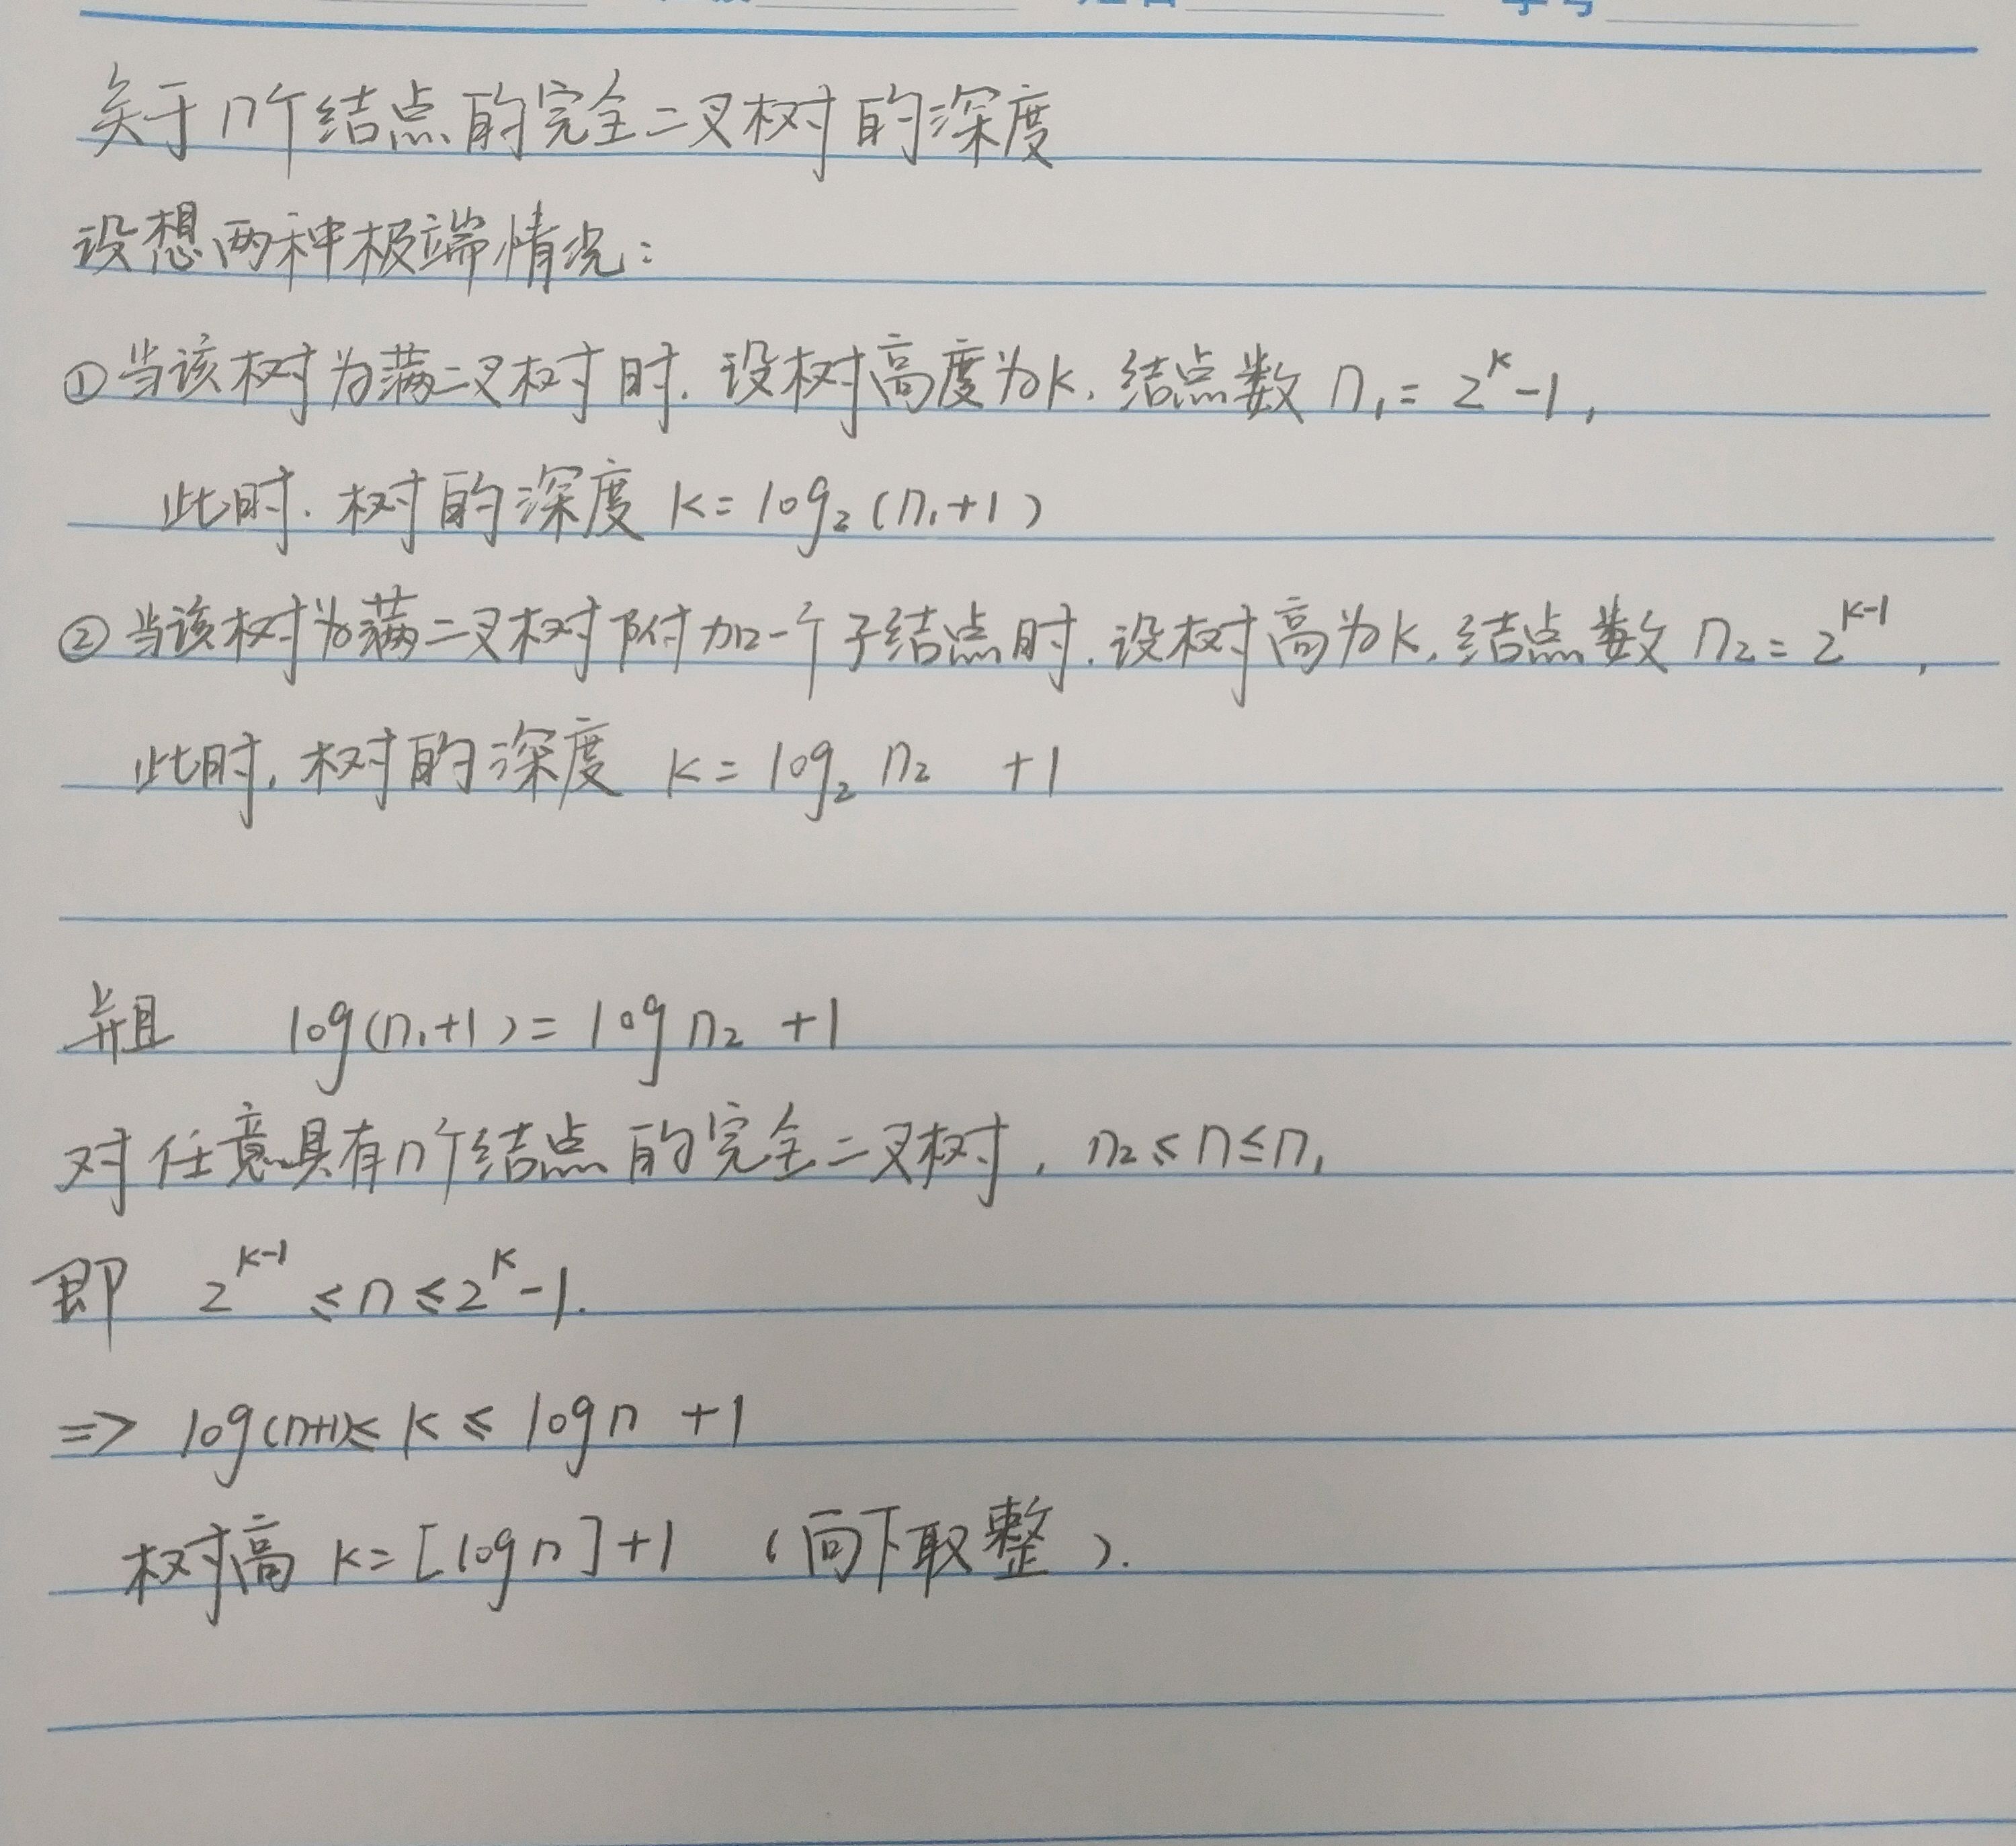 关于n个结点的完全二叉树的深度
设想两种极端情况：
①当该树为满二叉树时. 设树高度为k. 结点数 n₁ = 2^k - 1,
此时. 树的深度 k = log₂(n₁+1)
②当该树为满二叉树附加一个子结点时. 设树高为k. 结点数 n₂ = 2^(k-1),
此时, 树的深度 k = log₂ n₂ + 1
并且 log(n₁+1) = log n₂ + 1
对任意具有n个结点的完全二叉树, n₂ ≤ n ≤ n₁
即 2^(k-1) ≤ n ≤ 2^k - 1.
=> log(n+1) ≤ k ≤ log n + 1
树高 k = [log n] + 1 (向下取整).